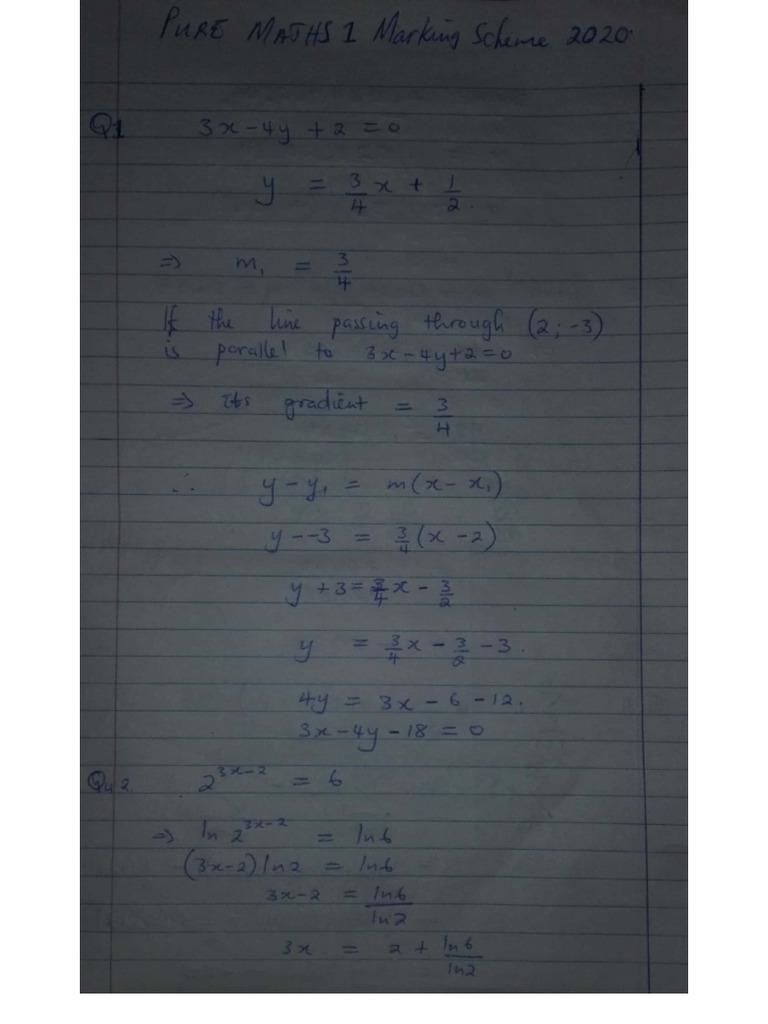 PURE MATHS 1 Marking Scheme 2020.
Q1 3x - 4y + 2 = 0
y = 3/4 x + 1/2.
⇒ m₁ = 3/4
If the line passing through (2; -3)
is parallel to 3x - 4y + 2 = 0
⇒ its gradient = 3/4
∴ y - y₁ = m(x - x₁)
y - -3 = 3/4 (x - 2)
y + 3 = 3/4 x - 3/2
y = 3/4 x - 3/2 - 3.
4y = 3x - 6 - 12.
3x - 4y - 18 = 0
Qu 2 2^(3x-2) = 6
⇒ ln 2^(3x-2) = ln6
(3x-2) ln2 = ln6
3x - 2 = ln6/ln2
3x = 2 + ln6/ln2